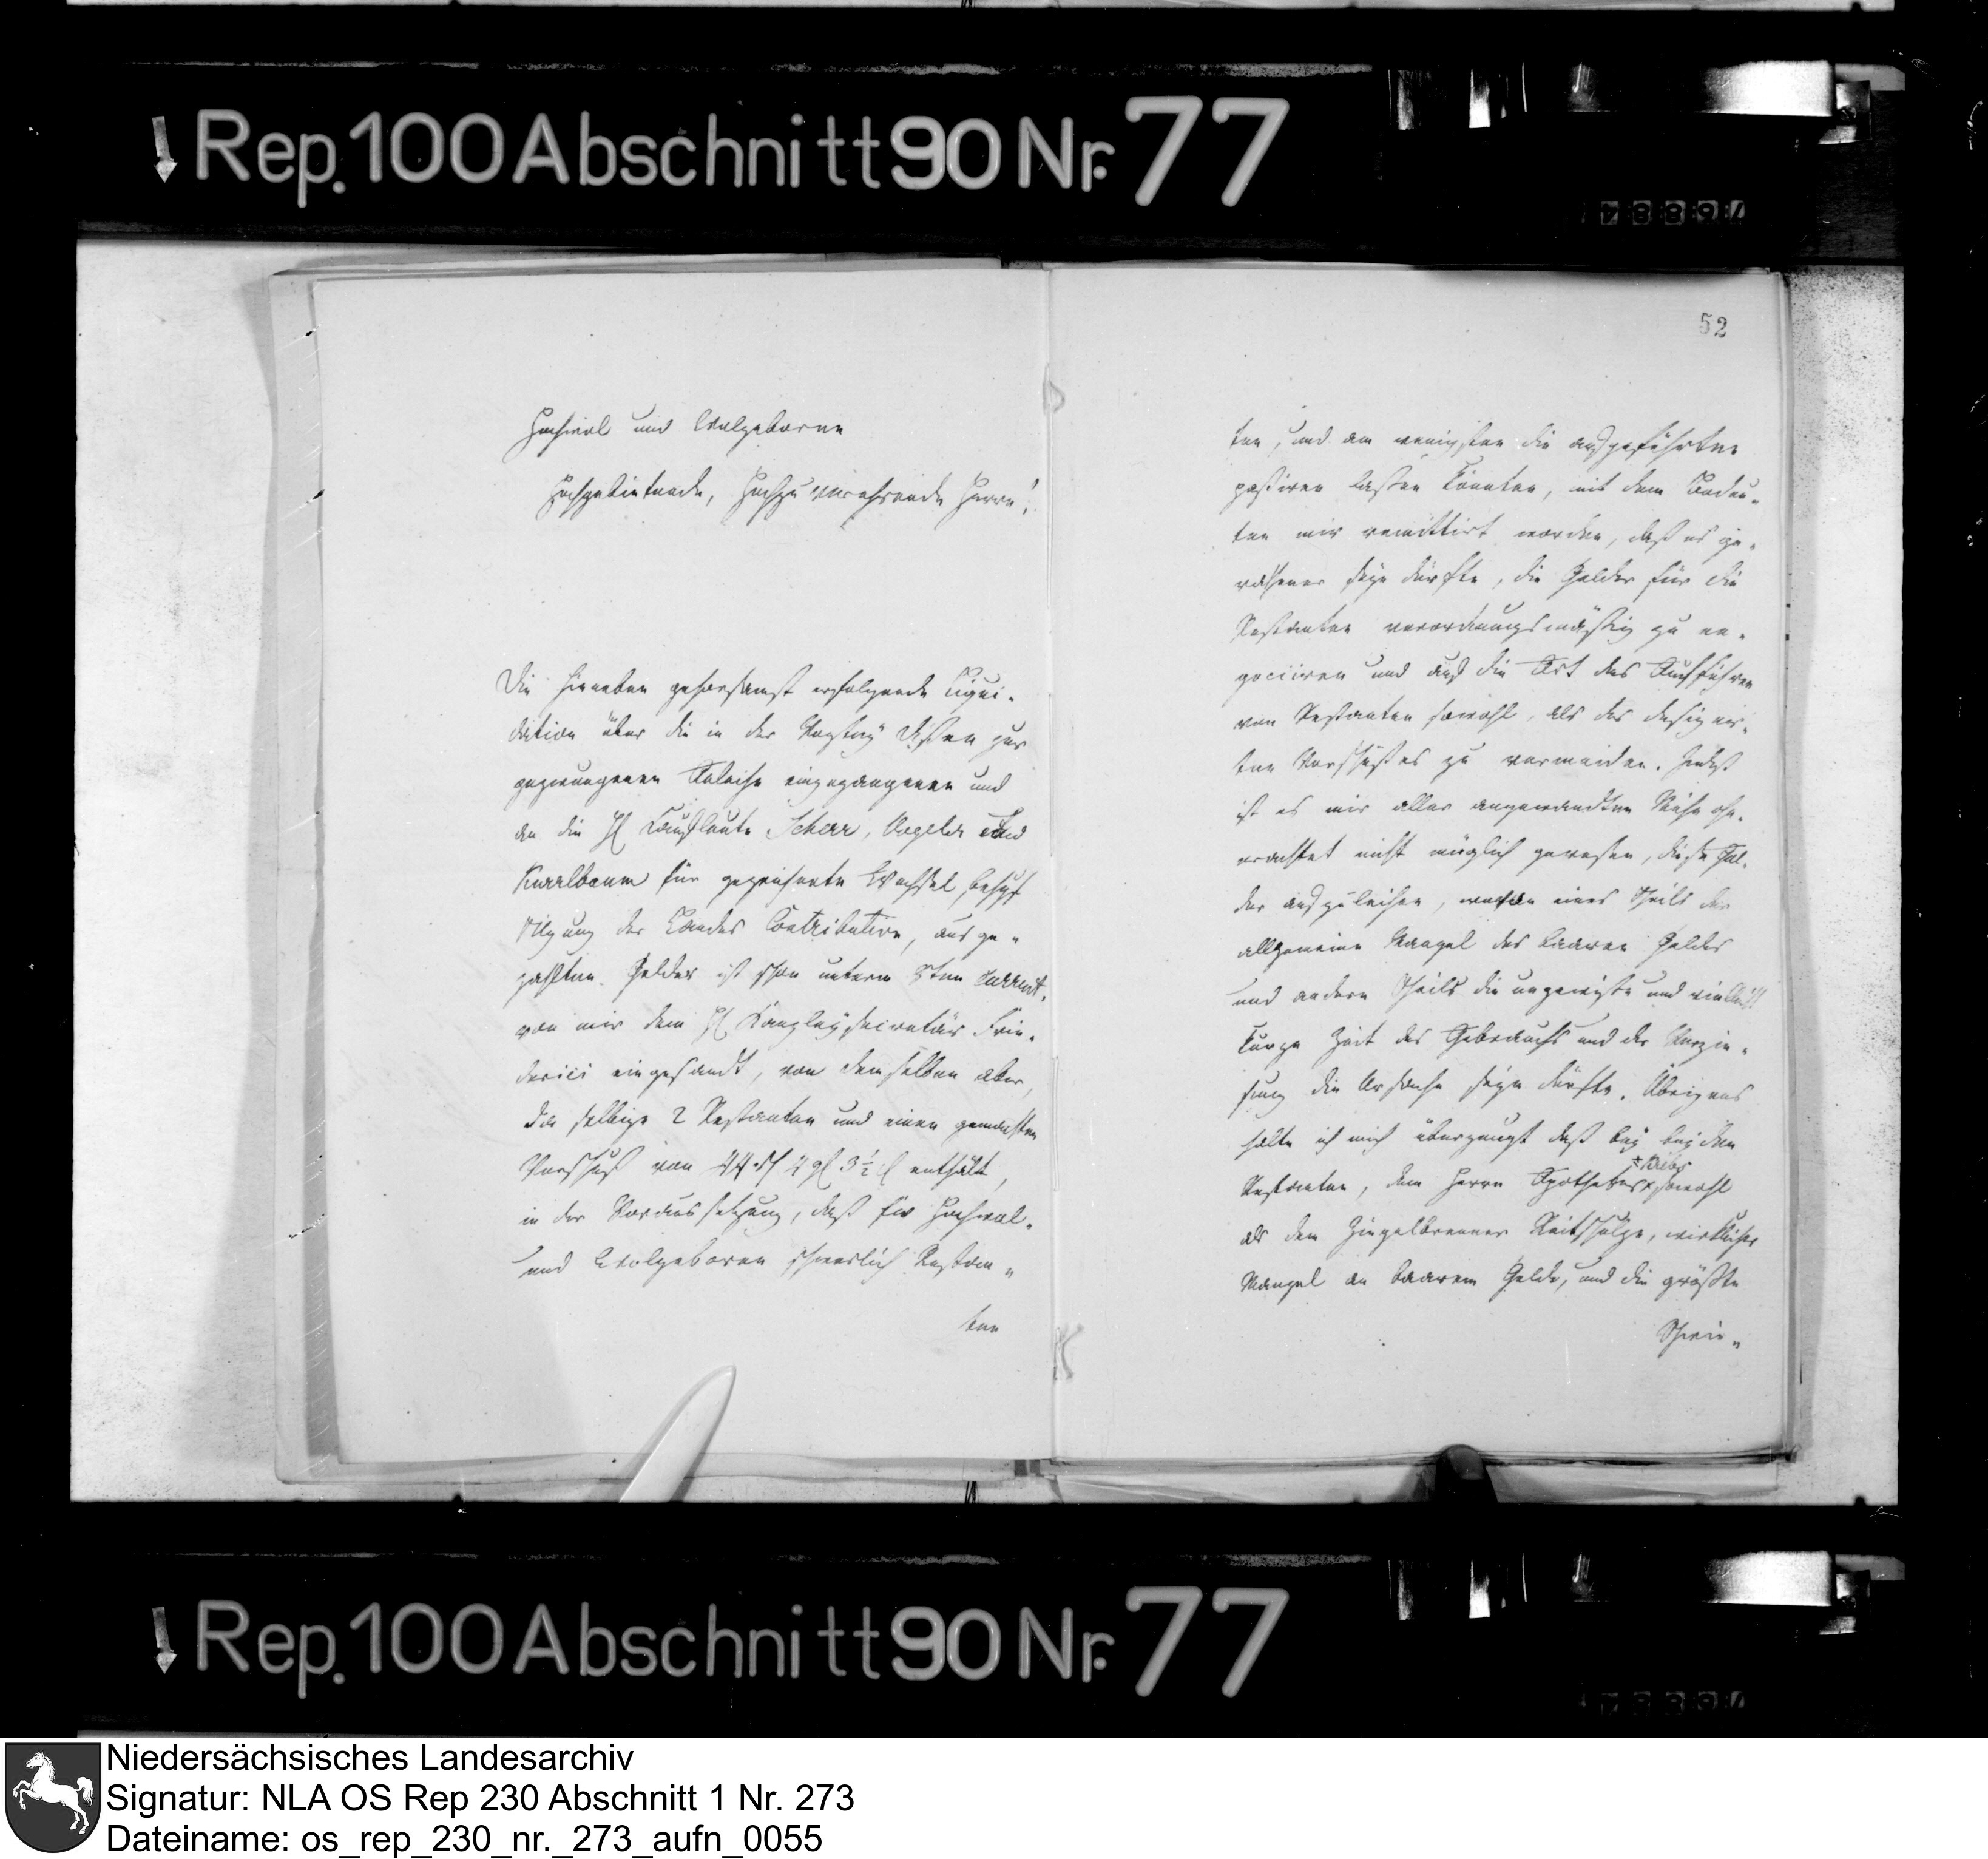 Rep. 100 Abschnitt 90 Nr. 77
Hochwol und Wolgeborne
Hochgebietende, Hochzuverehrende Herren!
Die hieneben gehorsamst erfolgende Liqui-
dation über die in der Vogtey Dissen zur
gezwungenen Anleihe eingegangenen und
an die H. Kaufleute Scherr, Vogeler und
Kurrelbaum für gezeichnete Wechsel, behuf
Tilgung der Landes Contribution, ausge-
zahlten Gelder ist schon unterm 8ten
von mir dem H. Canzleysecretär Frie-
derici eingesandt, von demselben aber,
da selbige 2 Restanten und einen gemachten
Vorschuß von 44 4 3 1/2 enthält,
in der Voraussetzung, daß Hochwol-
und Wolgeboren schwerlich Restan-
ten
52
ten, und am wenigsten die aufgeführten
passiren lassen könnten, mit dem Bedeu-
ten mir remittirt worden, daß es ge-
rathener seyn dürfte, die Gelder für die
Restanten verordnungsmäßig zu ne-
gociiren und auf die Art das Aufführen
von Restanten sowohl, als des
Vorschußes zu vermeiden. Indeß
ist es mir aller angewandten Mühe ohn-
erachtet nicht möglich gewesen, diese Gel-
der anzuleihen, wovon eines Theils der
allgemeine Mangel des baaren Geldes
und andern Theils die ungewisse und vielleicht
kurze Zeit des Gebrauchs und der Verzin-
sung die Ursache seyn dürfte. Übrigens
halte ich mich überzeugt daß bey beyden
Restanten, dem Herrn Apotheker sowohl
als dem Ziegelbrenner, wirklicher
Mangel an baarem Gelde, und die größte
Schwie-
Rep. 100 Abschnitt 90 Nr. 77
Niedersächsisches Landesarchiv
Signatur: NLA OS Rep 230 Abschnitt 1 Nr. 273
Dateiname: os_rep_230_nr._273_aufn_0055